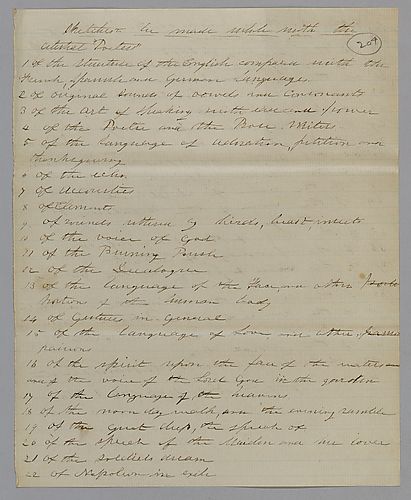 Sketches to be made while with the
204
1 of the structure of the English compared with the
French, Spanish and German Languages
2 of original sounds of vowels and consonants
3 of the art of speaking with ease and power
4 of the Poetic and the Prose Writers
5 of the Language of adoration, petition and
thanksgiving
6 of the echo
7 of Accoustics
8 of Elements
9 of sounds uttered by birds, beast, insects
10 of the voice of God
11 of the Burning Bush
12 of the Decalogue
13 of the Language of the Face, and other
of the human body
14 of Gestures in General
15 of the Language of Love, and other
passions
16 of the spirit upon the face of the waters
and of the voice of the Lord God in the garden
17 of the Language of the heavens
18 of the noon day walk, and the evening ramble
19 of the speech of
20 of the speech of the Maiden and her lover
21 of the soldiers dream
22 of Napoleon in exile